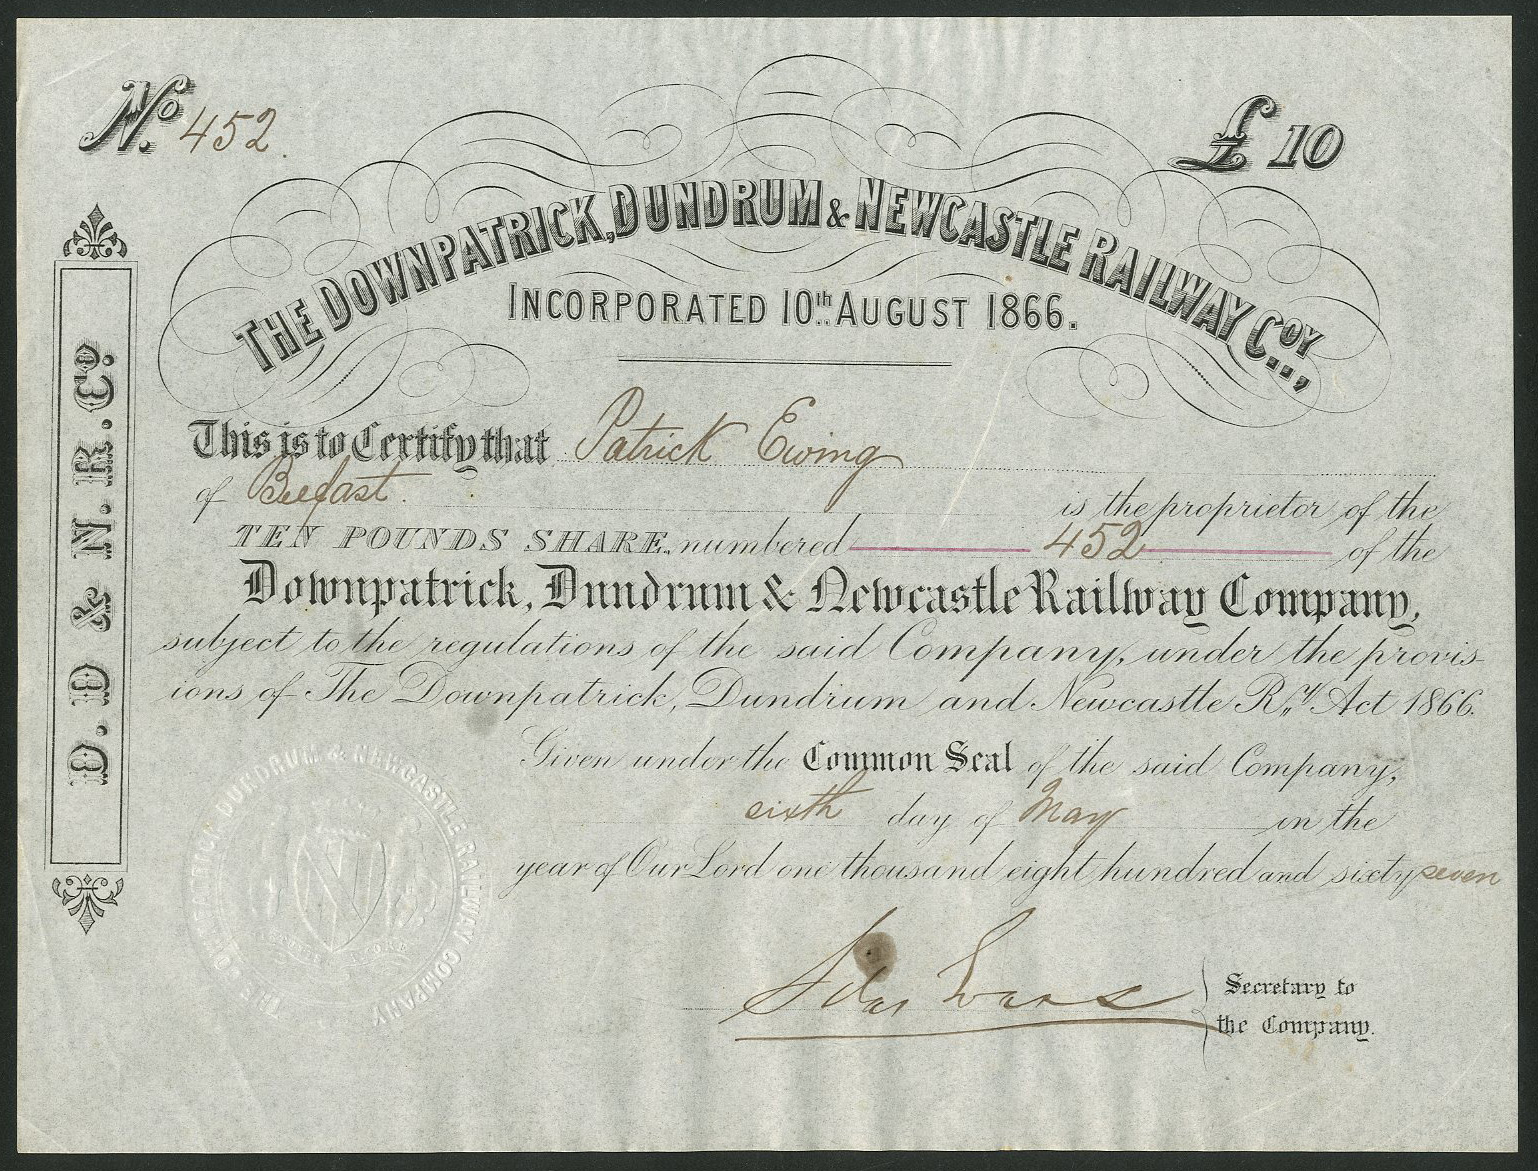 No. 452.
£10
THE DOWNPATRICK, DUNDRUM & NEWCASTLE RAILWAY COY.,
INCORPORATED 10th AUGUST 1866.
D. D & N. R. Co.
This is to Certify that Patrick Ewing
of Belfast. is the proprietor of the
TEN POUNDS SHARE, numbered 452 of the
Downpatrick, Dundrum & Newcastle Railway Company,
subject to the regulations of the said Company, under the provis-
ions of The Downpatrick, Dundrum and Newcastle Ry. Act 1866.
Given under the Common Seal of the said Company,
sixth day of May in the
year of Our Lord one thousand eight hundred and sixty seven
Secretary to
the Company.
THE DOWNPATRICK DUNDRUM & NEWCASTLE RAILWAY COMPANY